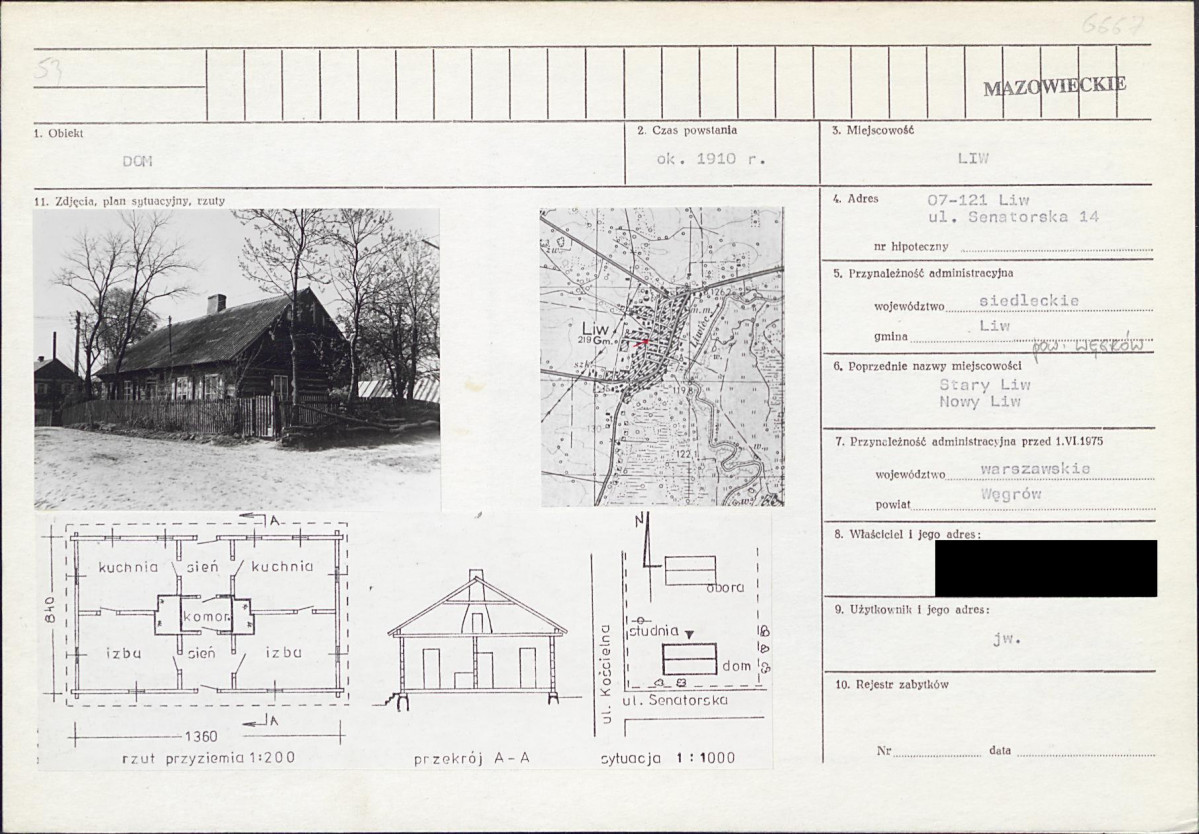 6667
53
MAZOWIECKIE
1. Obiekt
DOM
2. Czas powstania
ok. 1910 r.
3. Miejscowość
LIW
11. Zdjęcia, plan sytuacyjny, rzuty
4. Adres
07-121 Liw
ul. Senatorska 14
nr hipoteczny
5. Przynależność administracyjna
województwo siedleckie
gmina Liw
pow. WĘGRÓW
6. Poprzednie nazwy miejscowości
Stary Liw
Nowy Liw
7. Przynależność administracyjna przed 1.VI.1975
województwo warszawskie
powiat Węgrów
8. Właściciel i jego adres:
9. Użytkownik i jego adres:
jw.
10. Rejestr zabytków
Nr data
Liw
219 Gm.
126,2
119,8
122,1
130
A
kuchnia sień kuchnia
840
komor.
izba sień izba
A
1360
rzut przyziemia 1:200
przekrój A-A
N
obora
studnia
dom
ul. Kościelna
ul. Senatorska
sytuacja 1:1000